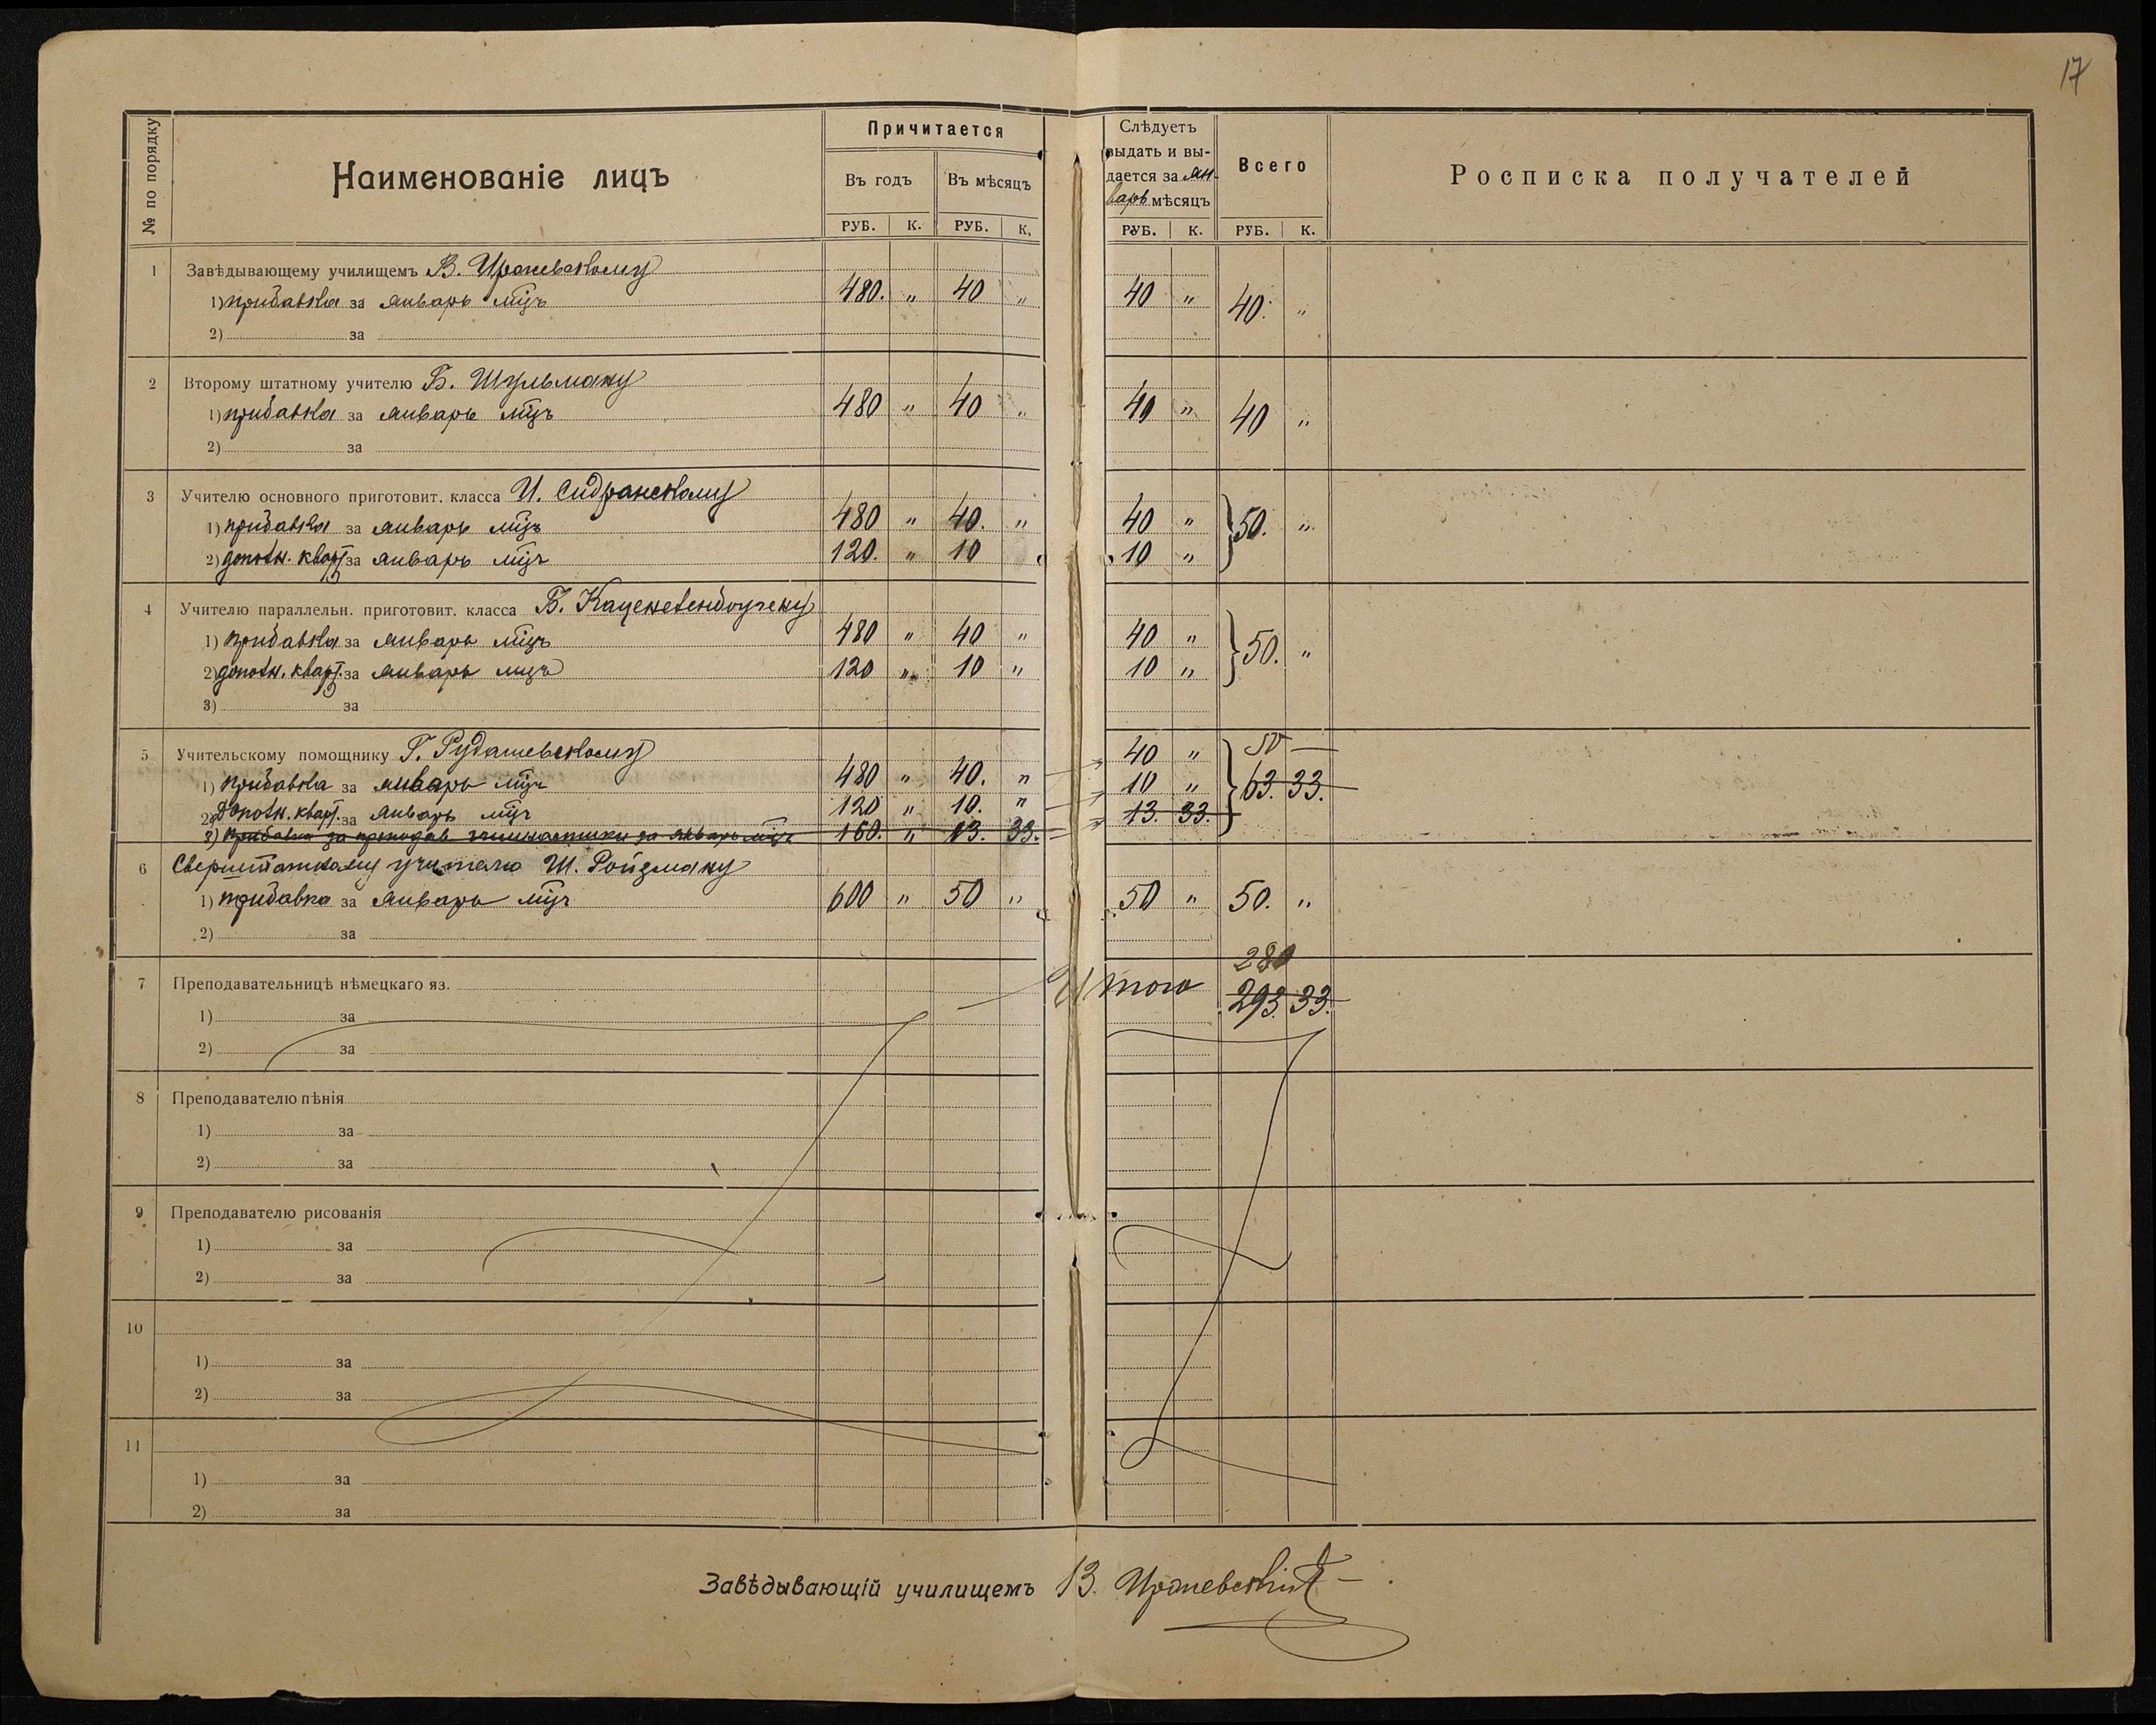 17
№ по порядку
Наименованіе лицъ
Причитается
Въ годъ
Въ мѣсяцъ
РУБ. К. РУБ. К.
Слѣдуетъ
выдать и вы-
дается за ян-
варь мѣсяцъ
РУБ. К.
Всего
РУБ. К.
Росписка получателей
1 Завѣдывающему училищемъ В. Ираневскому
1) прибавка за январь мц̃ъ 480. " 40 " 40 " 40. "
2) за
2 Второму штатному учителю Б. Шульману
1) прибавка за январь мц̃ъ 480 " 40 " 40 " 40 "
2) за
3 Учителю основного приготовит. класса И. Сидранскому
1) прибавка за январь мц̃ъ 480 " 40. " 40 " } 50. "
2) дополн. кварт за январь мц̃ъ 120. " 10 10 "
4 Учителю параллельн. приготовит. класса Б. Каценеленбогену
1) прибавка за январь мц̃ъ 480 " 40 " 40 " } 50. "
2) дополн. кварт. за январь мцъ 120 " 10 " 10 "
3) за
5 Учительскому помощнику Г. Рудашевскому 40 " 50 —
1) прибавка за январь мц̃ъ 480 " 40. " 10 " } 63. 33.
2) дополн. кварт. за январь мц̃ъ 120 " 10. " 13. 33.
3) прибавка за преподав. гимнастики за январь мц̃ъ 160. " 13. 33.
6 Сверштатному учителю Ш. Ройзману
1) прибавка за январь мц̃ъ 600 " 50 " 50 " 50. "
2) за
280
7 Преподавательницѣ нѣмецкаго яз. Итого 293. 33.
1) за
2) за
8 Преподавателю пѣнія
1) за
2) за
9 Преподавателю рисованія
1) за
2) за
10
1) за
2) за
11
1) за
2) за
Завѣдывающій училищемъ В. Ираневскій